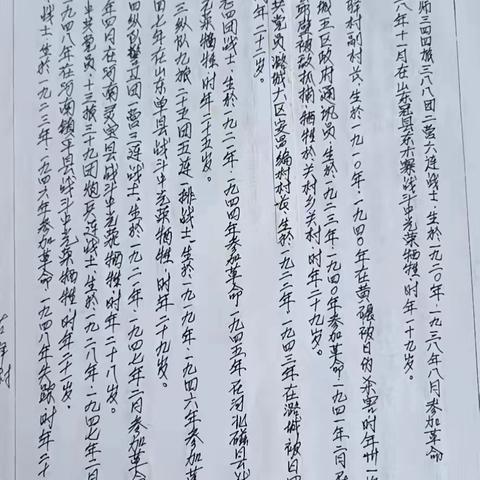 师三四四旅六八八团二营六连战士，生於一九二〇年，一九三八年八月参加革命
八年十一月在山东冠县东木寨战斗中光荣牺牲，时年二十九岁。
驿村副村长，生於一九一〇年，一九四〇年在黄碾被日伪杀害时年卅一
城五区政府通讯员，生於一九二三年，一九四〇年参加革命，一九四一年二月
被敌抓捕，牺牲於关村乡关村，时年二十九岁。
共党员，潞城六区安昌编村村长，生於一九二二年，一九四三年在潞城被日
年二十二岁。
老四团战士，生於一九二一年，一九四四年参加革命，一九四五年在河北磁县
光荣牺牲，时年二十五岁。
三纵队九旅二十五团五连一排战士，生於一九一九年，一九四六年参加革
四七年在山东单县战斗中光荣牺牲，时年二十九岁。
四纵队警卫团一营三连战士，生於一九二一年，一九四七年二月参加革
年四月在河南灵宝县战斗中光荣牺牲时年二十八岁。
中共党员，十三旅三十九团炮兵连战士，生於一九二八年，一九四七年二月
一九四八年在河南镇平县战斗中光荣牺牲，时年二十岁。
战士，生於一九二三年，一九四六年参加革命，一九四八年失踪，时年二十